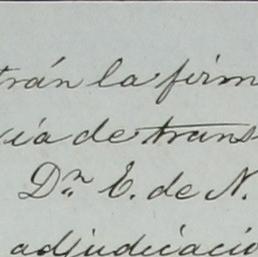 trán la firm
cia de trans
Dn E. de N.
adjudicacio